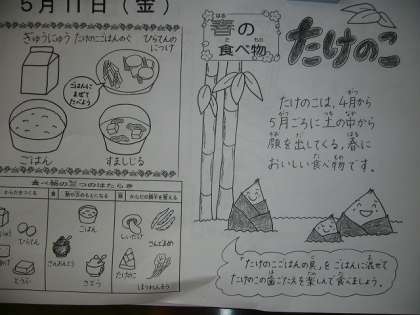 5月11日（金）
ぎゅうにゅう たけのこごはんのぐ ひらてんのにつけ
ごはんに
まぜて
たべよう
ごはん
すましじる
食べ物の三つのはたらき
ひらてん
とうふ
ごはん
さとう
しいたけ
たけのこ
ほうれんそう
春の
食べ物
たけのこ
たけのこは、4月から
5月ごろに土の中から
顔を出してくる、春に
おいしい食べ物です。
「たけのこごはんの具」をごはんに混ぜて
たけのこの歯ごたえを楽しんで食べましょう。